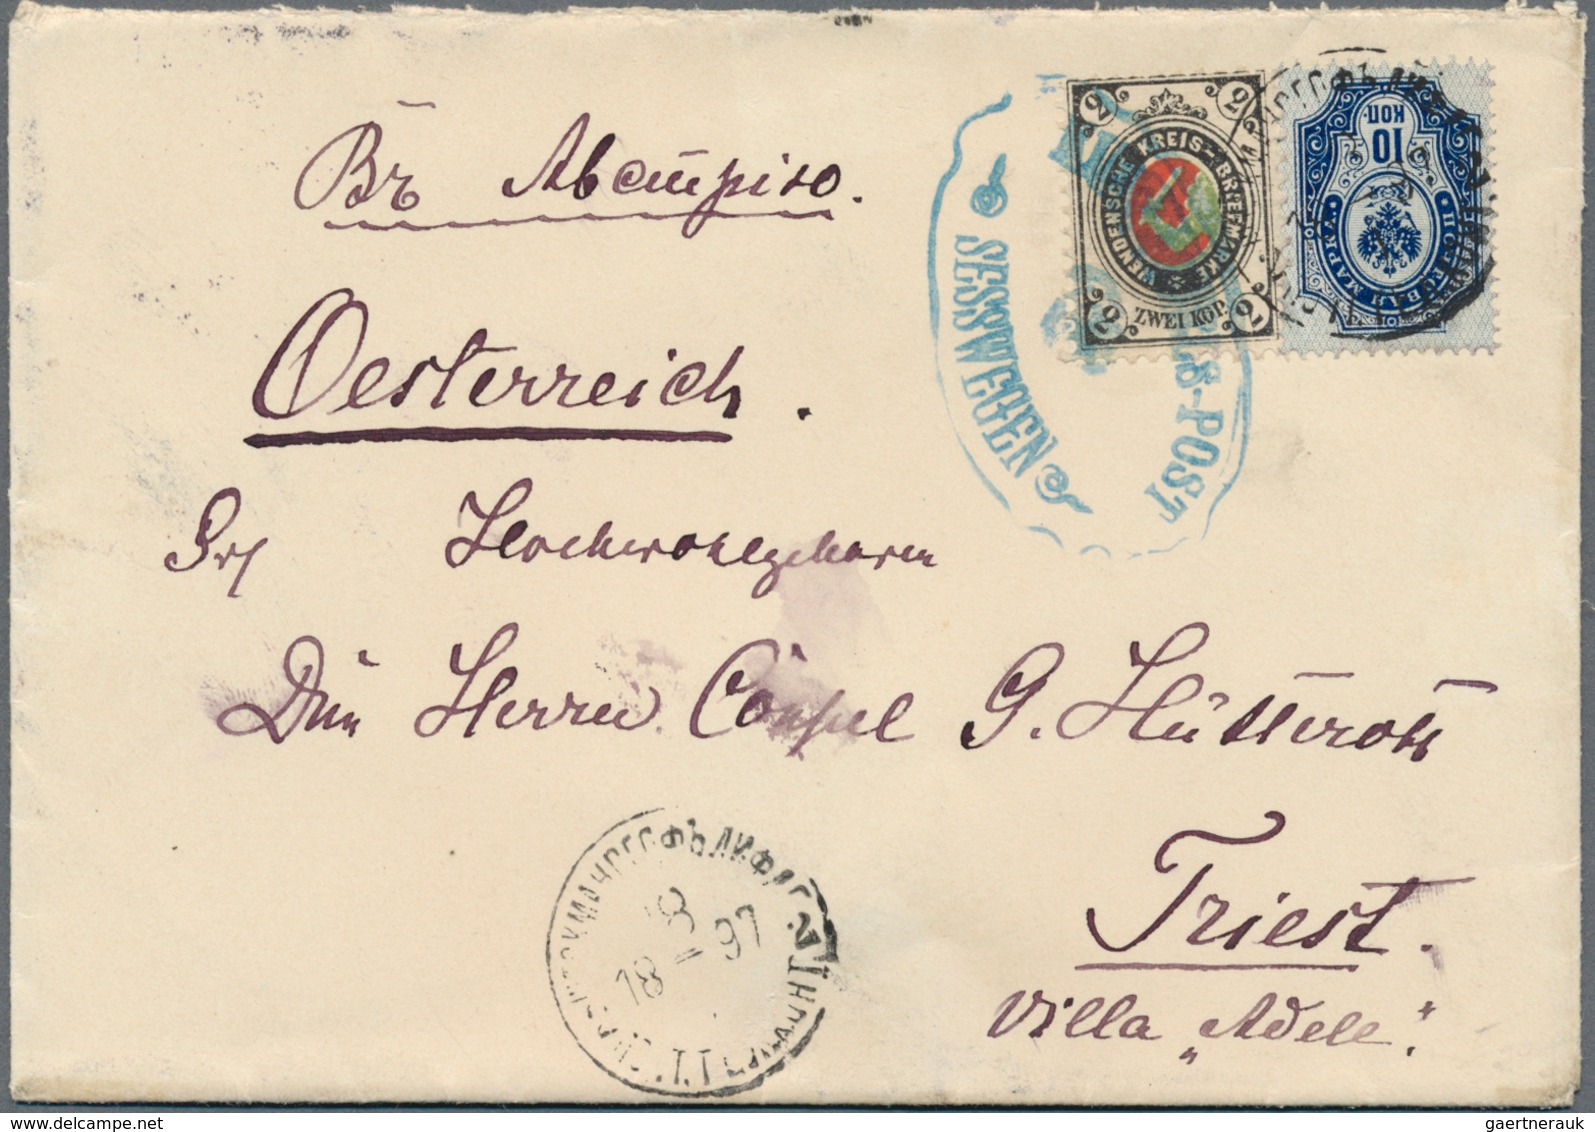 Въ Австрiю.
Oesterreich.
Sr Hochwohlgeboren
Den Herrn Consul G. Hütterott
Triest.
Villa „Adele".
2 2
WENDENSCHE KREIS-BRIEFMARKE
ZWEI KOP.
2 2
10
КОП.
ПОЧТОВАЯ МАРКА
SESSWEGEN
S-POST
18 97
gaertnerauk